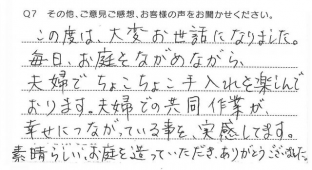 Q7 その他、ご意見ご感想、お客様の声をお聞かせください。
この度は、大変お世話になりました。
毎日、お庭をながめながら、
夫婦でちょこちょこ手入れを楽しんで
おります。夫婦での共同作業が、
幸せにつながっている事を、実感してます。
素晴らしい、お庭を造っていただき、ありがとうございました。